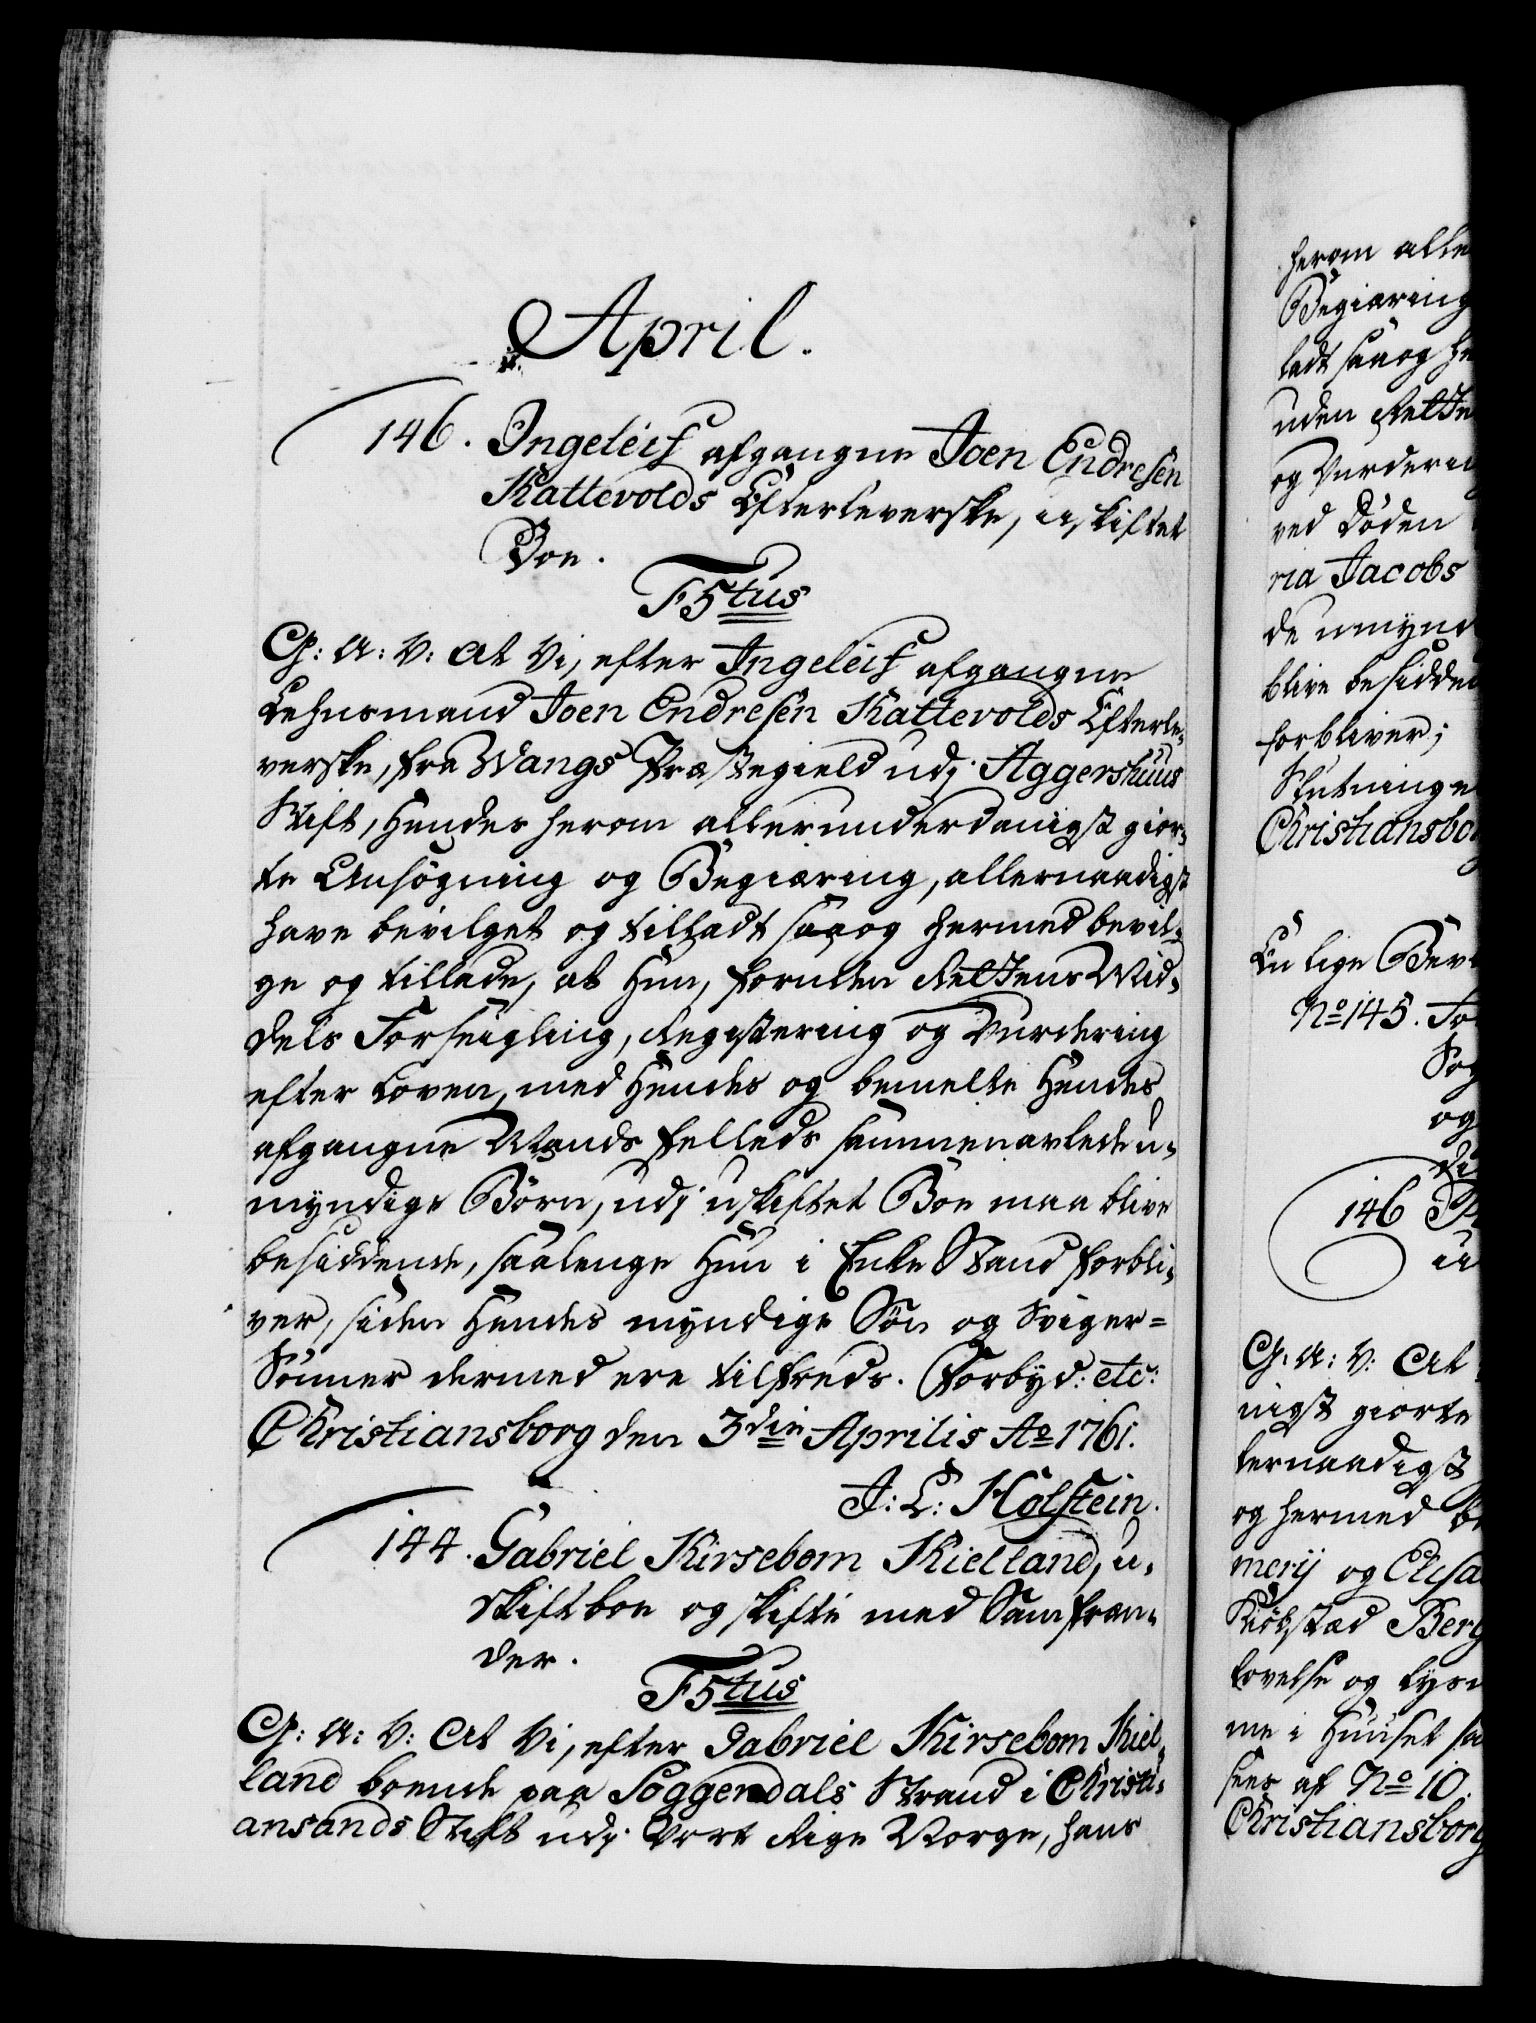 April.
146. Ingeleif afgangne Joen Endresen
Kattevolds Efterleverske, uskiftet
Boe.
F5tus
G: A: V: At Vi, efter Ingeleif afgangne
Lehnsmand Joen Endresen Kattevolds Efterle-
verske, fra Wangs Præstegield udj Aggershuus
Stift, Hendes herom allerunderdanigst gior-
te Ansøgning og Begiæring, allernaadigst
have bevilget og tilladt saa og hermed bevil-
ge og tillade, at Hun, foruden Rettens Mid-
dels Forseigling, Registering og Vurdering
efter Loven, med Hendes og bemelte Hendes
afgangne Mands felleds sammenavlede u-
myndige Børn, udj uskiftet Boe maa blive
besiddende, saalenge Hun i Enke Stand forbli-
ver, siden Hendes myndige Søn og Sviger=
Sønner dermed ere tilfreds. Forbyd: etc:
Christiansborg den 3die Aprilis Ao 1761.
J: L: Holstein.
144. Gabriel Kirsebom Kielland, u-
skift boe og skifte med Samfræn-
der.
F5tus
G: A: V: At Vi, efter Gabriel Kirsebom Kiel-
land boende paa Soggendals Strand i Christi-
ansands Stift udj Vort Rige Norge, hans
herom alle
Begiæring
ladt saa og he
uden Rette
og Vurdering
ved Døden
ria Jacobs
de umynd
blive besidden
forbliver;
Slutninge
Christiansborg
En lige Bev
No 145. Jo
Sog
og
di
146
G: A: V: At
nigst giorte
lernaadigst
og hermed be
merij og Elisa
Kiøbstæd Berg
lovelse og lysn
me i Huuset sa
sees af No 10.
Christiansborg